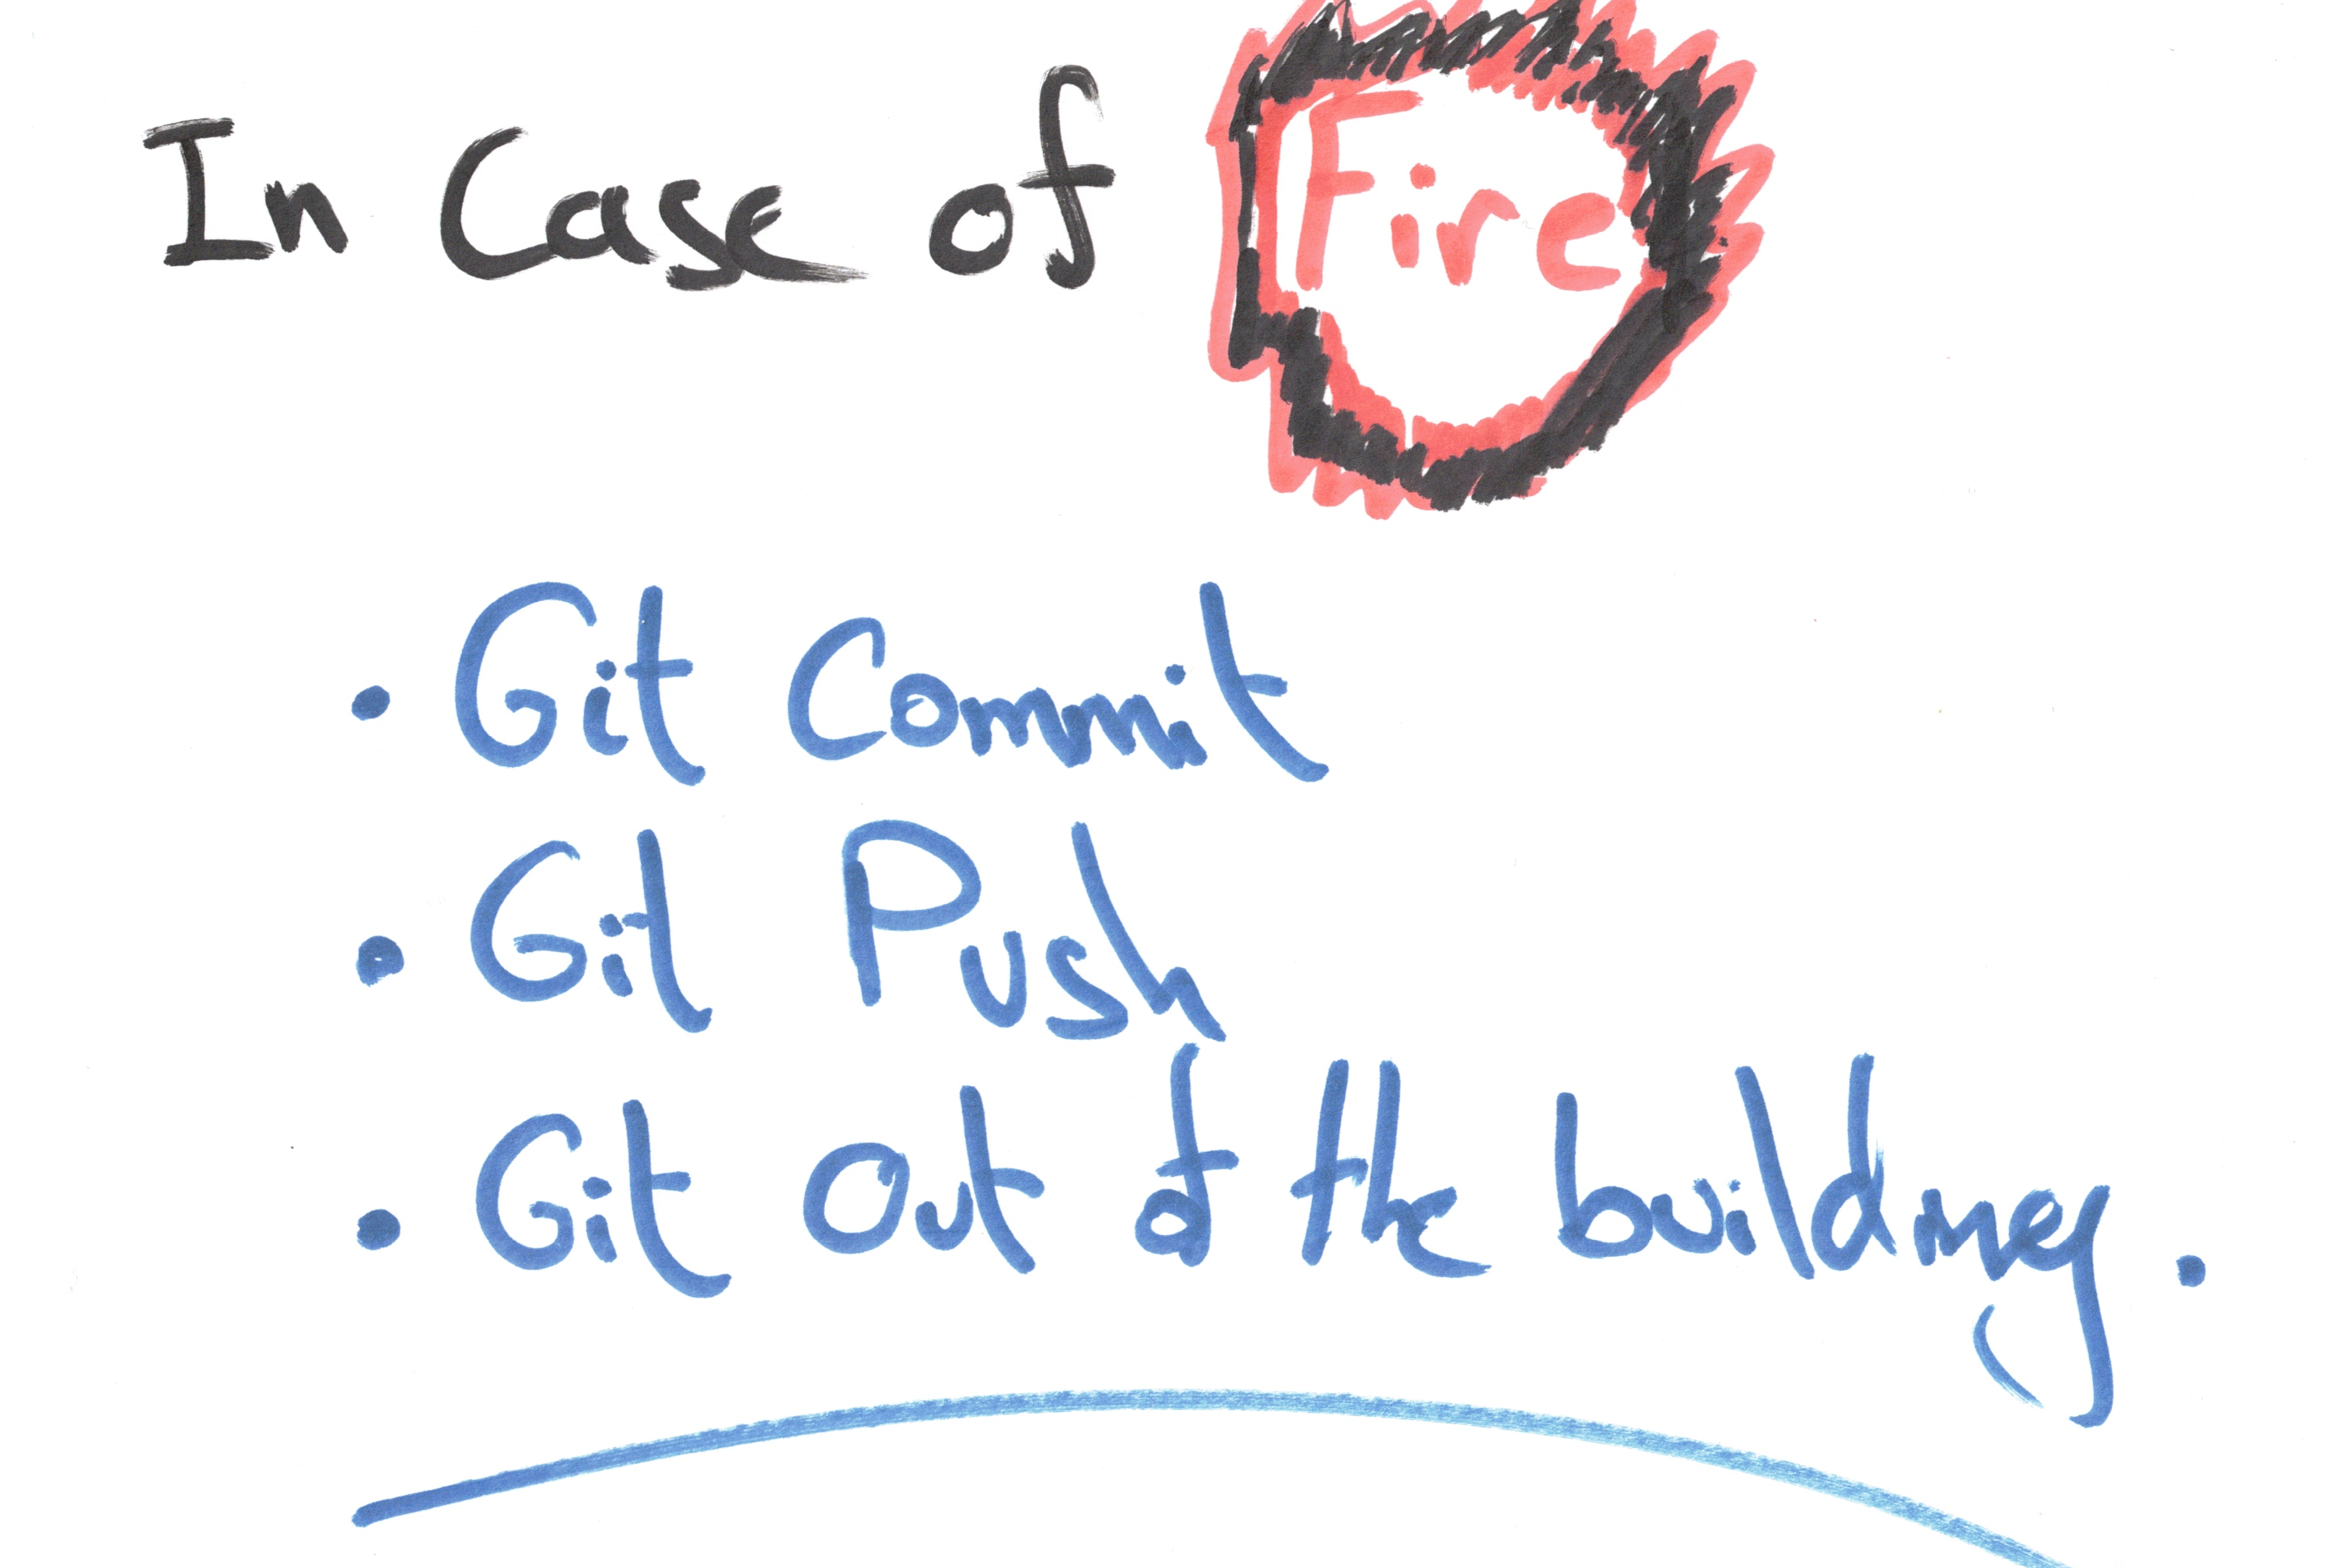 In Case of Fire
• Git Commit
• Git Push
• Git Out of the building.